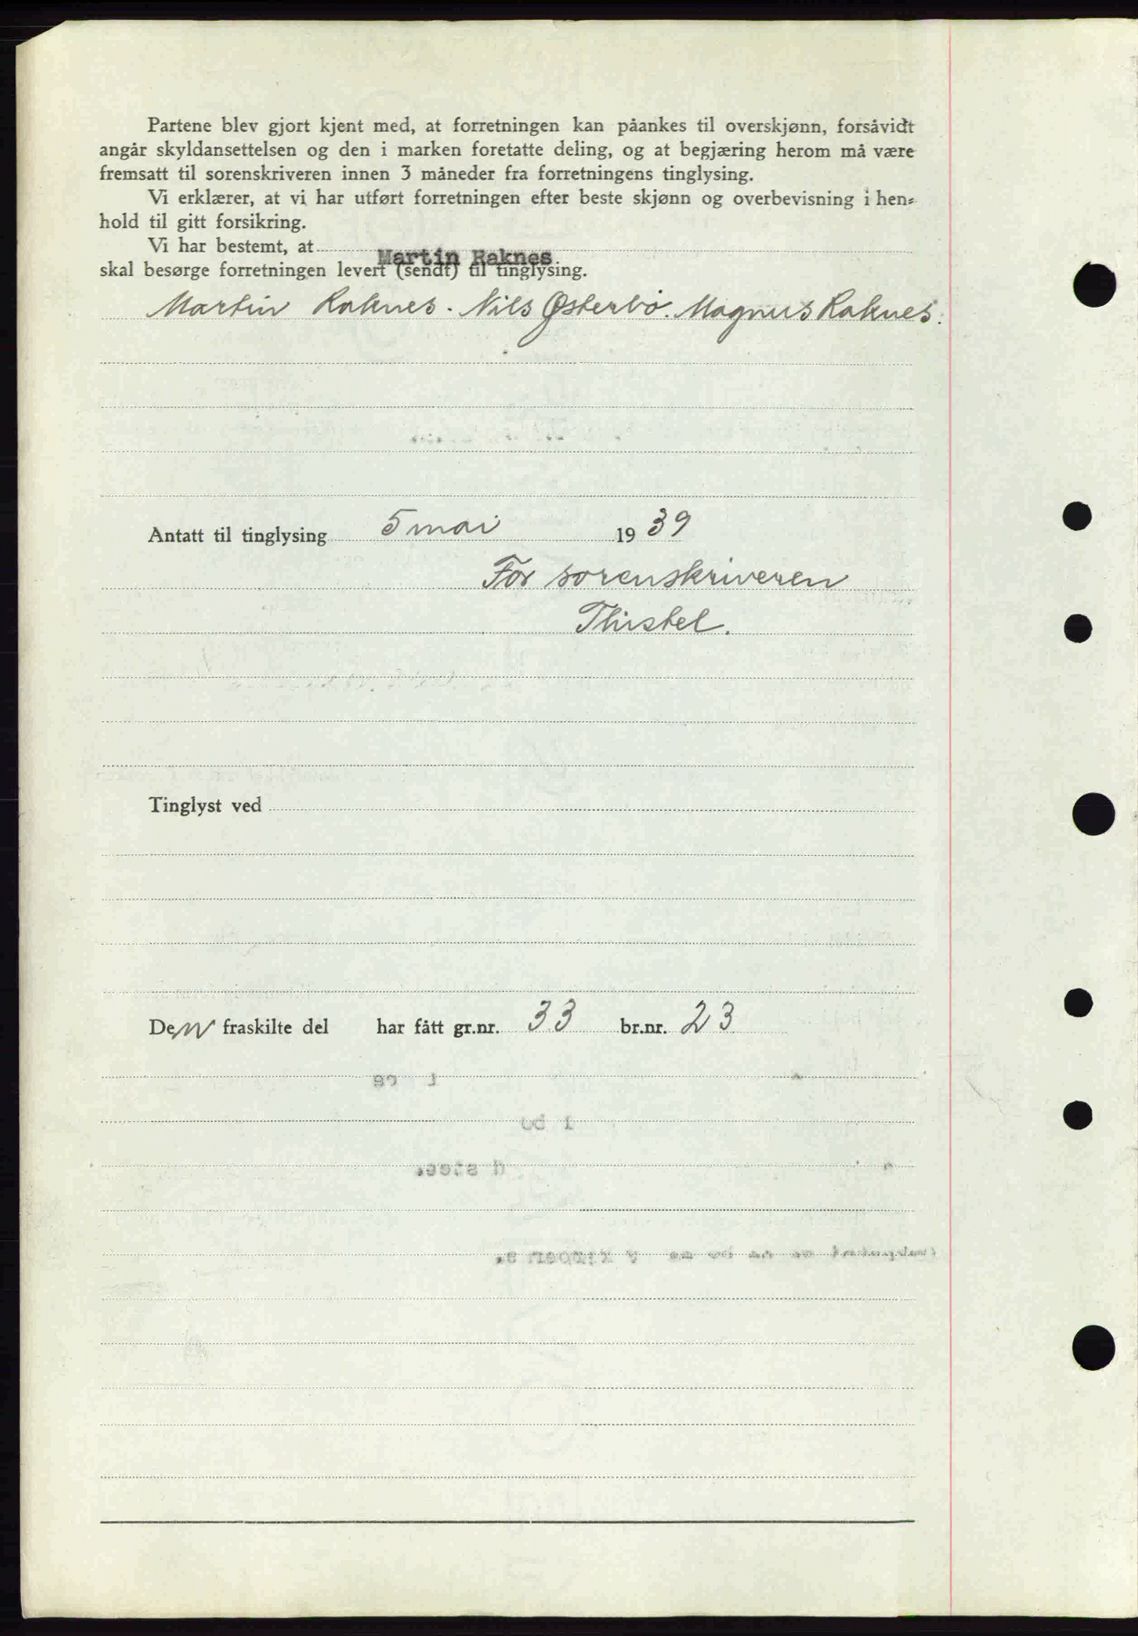 Partene blev gjort kjent med, at forretningen kan påankes til overskjønn, forsåvidt
angår skyldansettelsen og den i marken foretatte deling, og at begjæring herom må være
fremsatt til sorenskriveren innen 3 måneder fra forretningens tinglysing.
Vi erklærer, at vi har utført forretningen efter beste skjønn og overbevisning i hen-
hold til gitt forsikring.
Vi har bestemt, at Martin Raknes
skal besørge forretningen levert (sendt) til tinglysing.
Martin Raknes. Nils Østerbø. Magnus Raknes.
Antatt til tinglysing 5 mai 1939
For sorenskriveren
Thistel.
Tinglyst ved
Den fraskilte del har fått gr.nr. 33 br.nr. 23